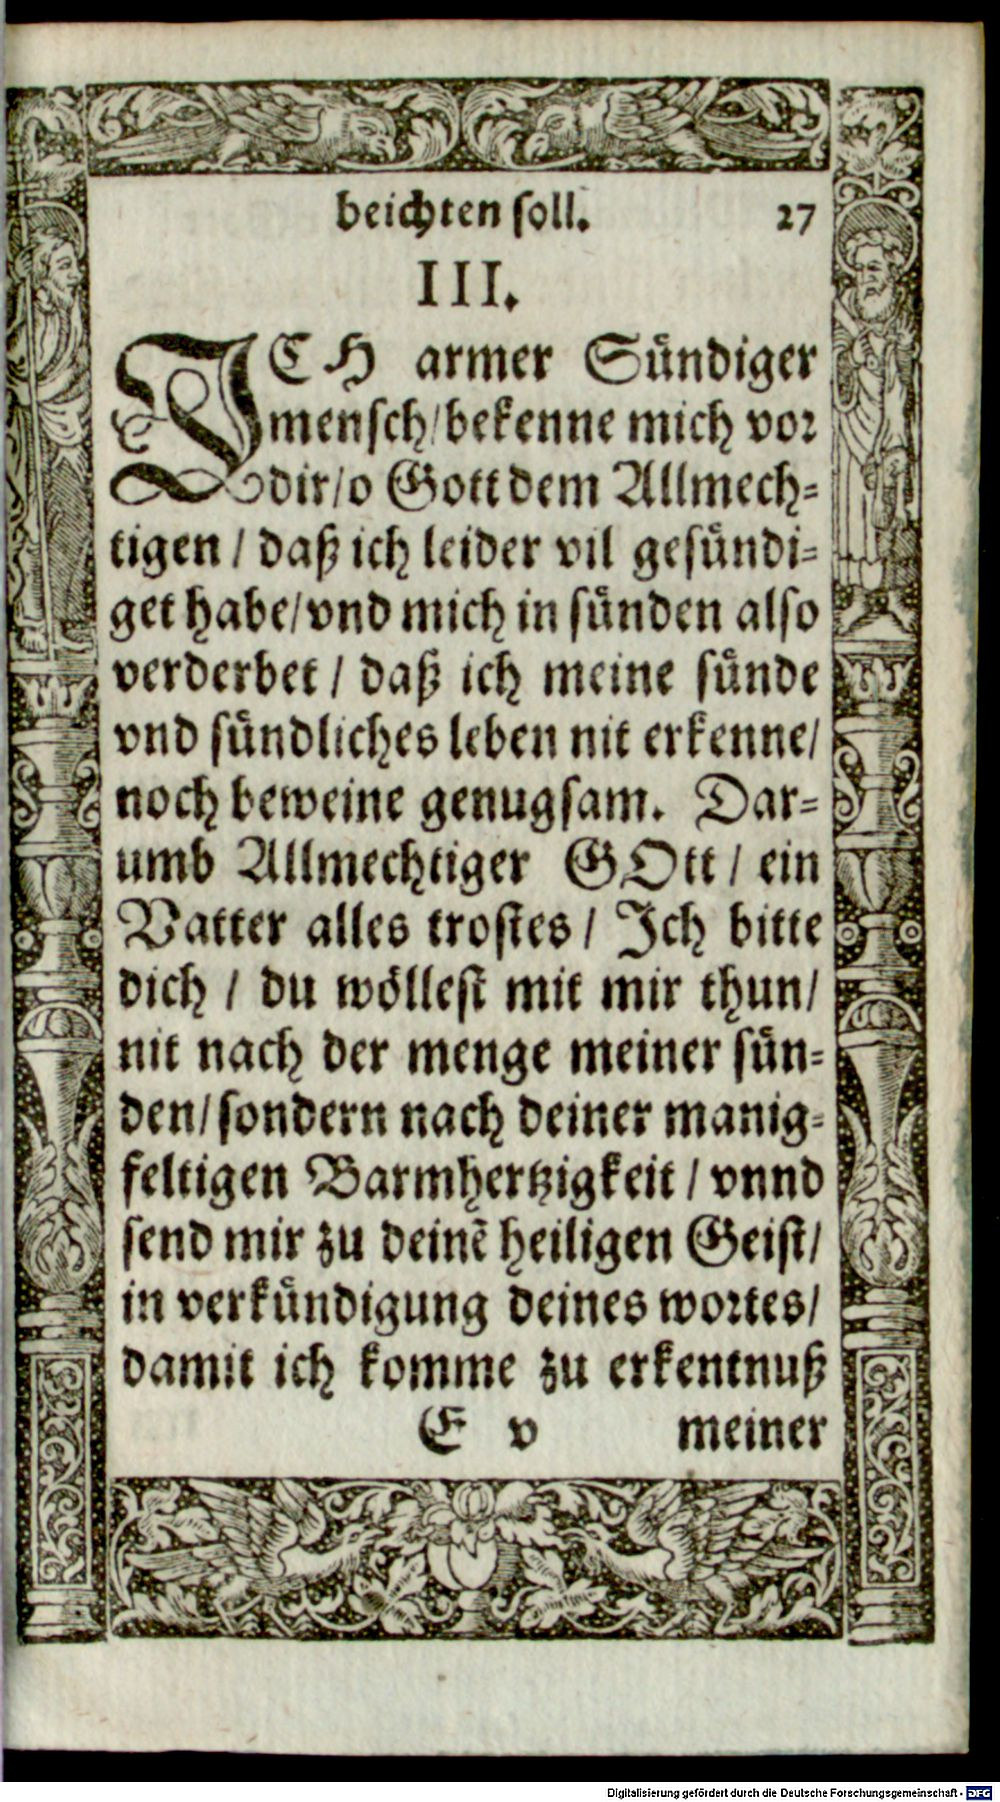 beichten soll. 27
III.
JCH armer Sündiger
mensch/bekenne mich vor
dir/o Gott dem Allmech-
tigen / daß ich leider vil gesündi-
get habe/vnd mich in sünden also
verderbet / daß ich meine sünde
vnd sündliches leben nit erkenne/
noch beweine genugsam. Dar-
umb Allmechtiger GOtt / ein
Vatter alles trostes / Jch bitte
dich / du wöllest mit mir thun/
nit nach der menge meiner sün-
den/sondern nach deiner manig-
feltigen Barmhertzigkeit / vnnd
send mir zu deinẽ heiligen Geist/
in verkündigung deines wortes/
damit ich komme zu erkentnuß
E v meiner
Digitalisierung gefördert durch die Deutsche Forschungsgemeinschaft - DFG